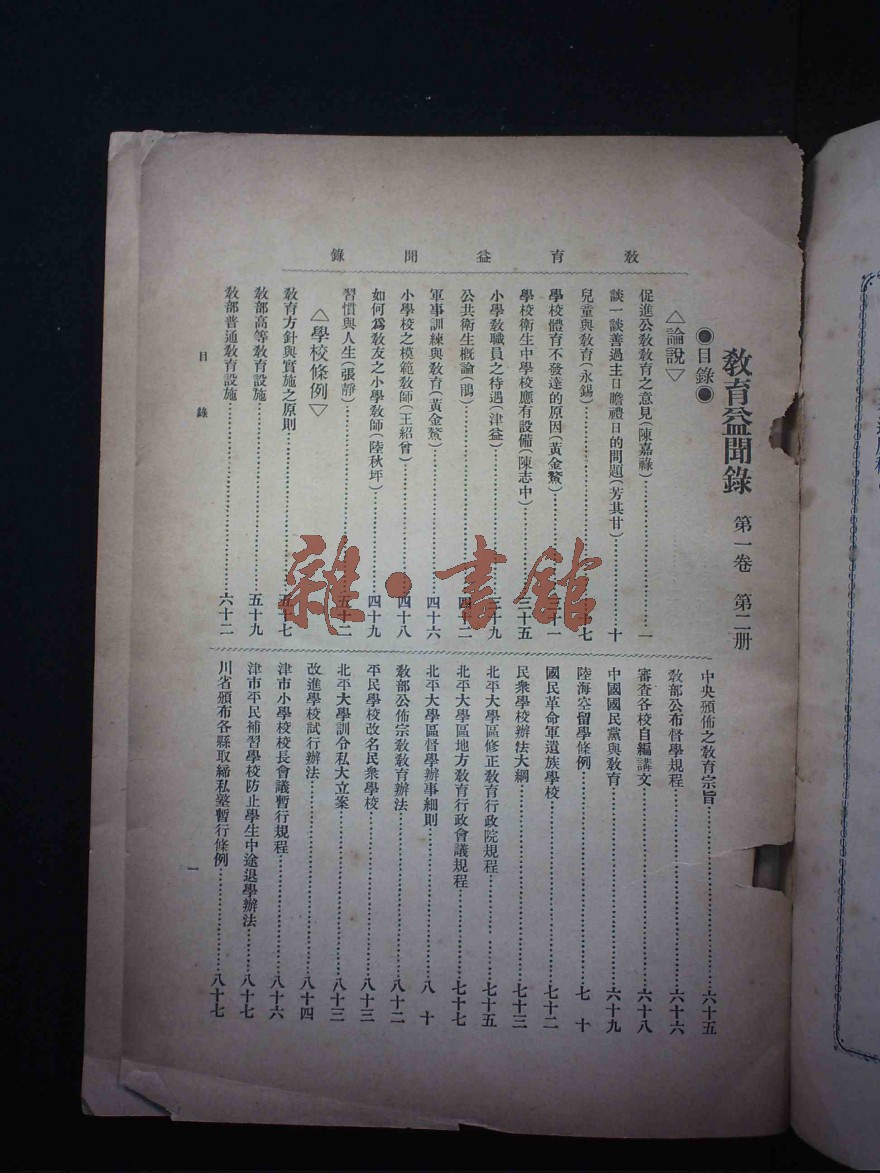 教育益聞錄
教育益聞錄 第一卷 第二册
●目錄●
△論說▽
促進公教教育之意見(陳嘉祿)…………一
談一談善過主日瞻禮日的問題(芳其甘)…………十
兒童與教育(永錫)…………十七
學校體育不發達的原因(黃金鰲)…………三十一
學校衛生中學校應有設備(陳志中)…………三十五
小學教職員之待遇(津益)…………三十九
公共衛生概論(鵑)…………四十二
軍事訓練與教育(黃金鰲)…………四十六
小學校之模範教師(王紹曾)…………四十八
如何爲教友之小學教師(陸秋坪)…………四十九
習慣與人生(張靜)…………五十二
△學校條例▽
教育方針與實施之原則…………五十七
教部高等教育設施…………五十九
教部普通教育設施…………六十二
中央頒佈之教育宗旨…………六十五
教部公布督學規程…………六十六
審查各校自編講文…………六十八
中國國民黨與教育…………六十九
陸海空留學條例…………七十
國民革命軍遺族學校…………七十二
民衆學校辦法大綱…………七十三
北平大學區修正教育行政院規程…………七十五
北平大學區地方教育行政會議規程…………七十七
北平大學區督學辦事細則…………八十
教部公佈宗教教育辦法…………八十二
平民學校改名民衆學校…………八十三
北平大學訓令私大立案…………八十三
改進學校試行辦法…………八十四
津市小學校校長會議暫行規程…………八十六
津市平民補習學校防止學生中途退學辦法…………八十七
川省頒布各縣取締私塾暫行條例…………八十七
目錄
一
雜·書館